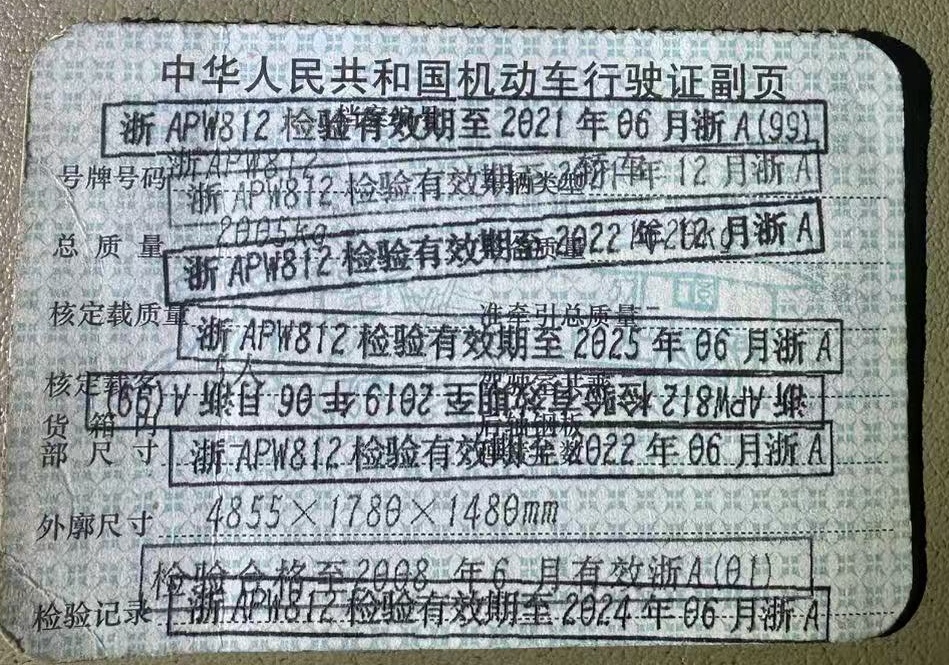 中华人民共和国机动车行驶证副页
浙 APW812 检验有效期至 2021 年 06 月浙 A(99)
号牌号码 浙APW812 辆类型 轿车
浙 APW812 检验有效期至 2021年 12 月浙 A
总质量 2005kg 备质量
浙 APW812 检验有效期至 2022 年 12 月浙 A
核定载质量 准牵引总质量 --
浙 APW812 检验有效期至 2025 年 06 月浙 A
核定载客 5人
浙 APW812 检验有效期至 2019 年 06 月浙 A(99)
货箱内
部尺寸
浙 APW812 检验有效期至 2022 年 06 月浙 A
外廓尺寸 4855×1780×1480mm
检验合格至2008 年6 月有效浙A(01)
检验记录 浙 APW812 检验有效期至 2024 年 06 月浙 A